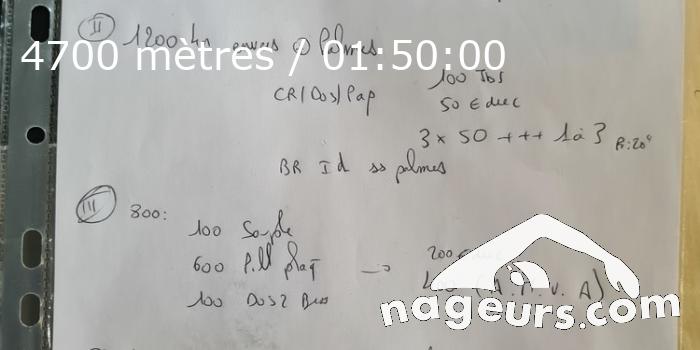 II 1200 4n Palmes
4700 mètres / 01:50:00
100 Tbs
CR/Dos/Pap 50 Educ
3 x 50 +++ 1 à 3 R:20"
BR Id ss palmes
III 800:
100 Souple
600 P.ll plaq → 200
100 Dos 2 Bras
nageurs.com